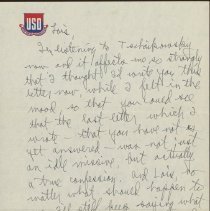 USO
Lois,
I'm listening to Tschaikowsky
now and it affects me so strongly
that I thought I'd write you this
letter now, while I felt in the
mood, so that you could see
that the last letter which I
wrote - that you have not as
yet answered - was not just
an idle missive, but actually
a true confession. And Lois, no
matter what should happen to
I'd still keep saying what